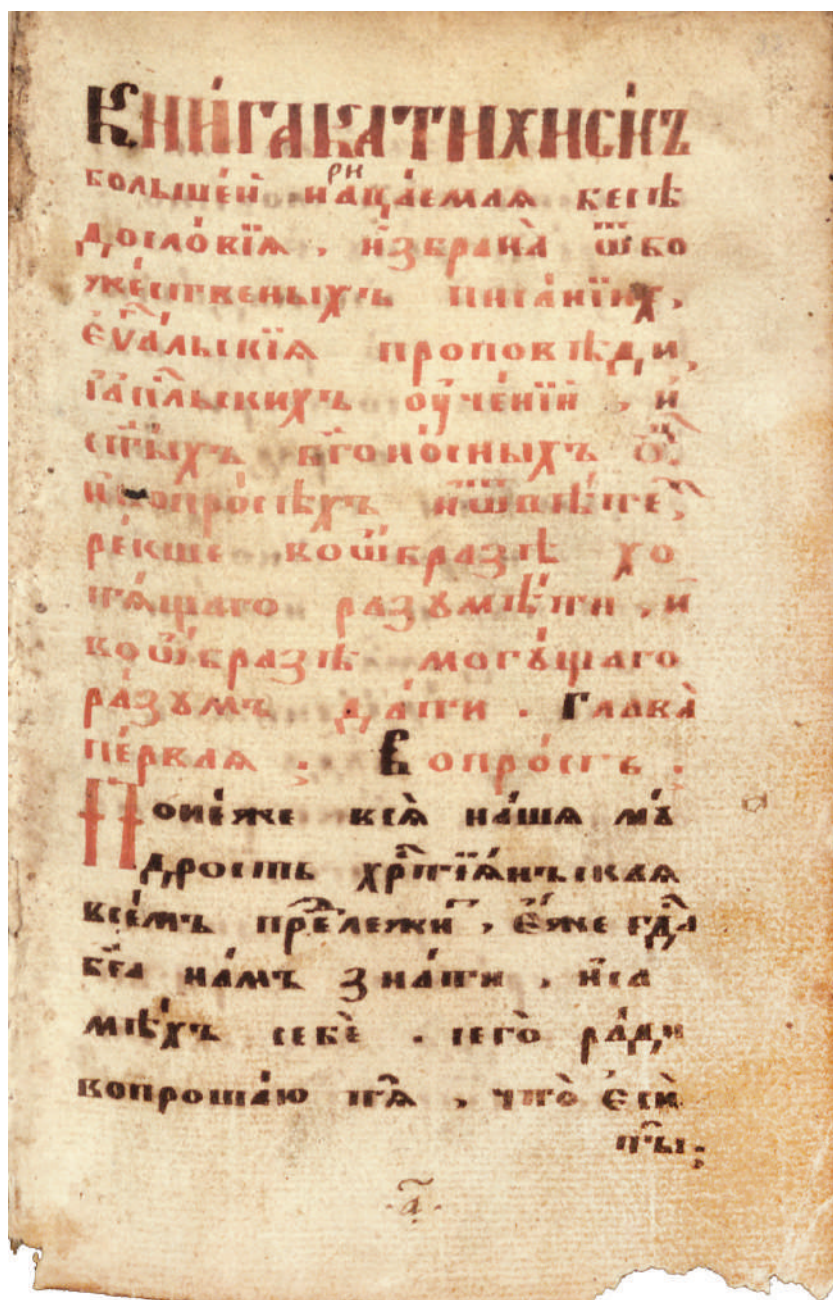 Кни́гакатихиси́съ
большеи́ нарица́емая бесѣ
дословїѧ . и҆збрана̀ ѿбо
же́ственыхъ писа́нїих,
є҆ѵⷢ҇а́льскїѧ проповѣди,
і҆а҆пⷭ҇льскихъ оу҆че́нїи , и҆
ст҃ы́хъ бг҃оно́сныхъ ѻ҆ц҃ъ
ре́кше воѡ҆бразѣ хо
тѧ́щаго разꙋмѣ́ти , и҆
воѡ҆бразѣ могꙋ́щаго
ра́зꙋмъ да́ти . Глава̀
пе́рваѧ ; Вопро́съ .
Поне́же всѧ̀ на́ша мꙋ́
дрость хрⷭ҇тїѧ́нъскаѧ
все́мъ пред̾лежиⷮ , є҆́же гдⷭ҇а
бг҃а на́мъ зна́ти , и҆са
мѣ́хъ себѐ . сего̀ ра́ди
вопроша́ю тѧ̀ , что̀ є҆сѝ
ты̀ ;
·а҃·